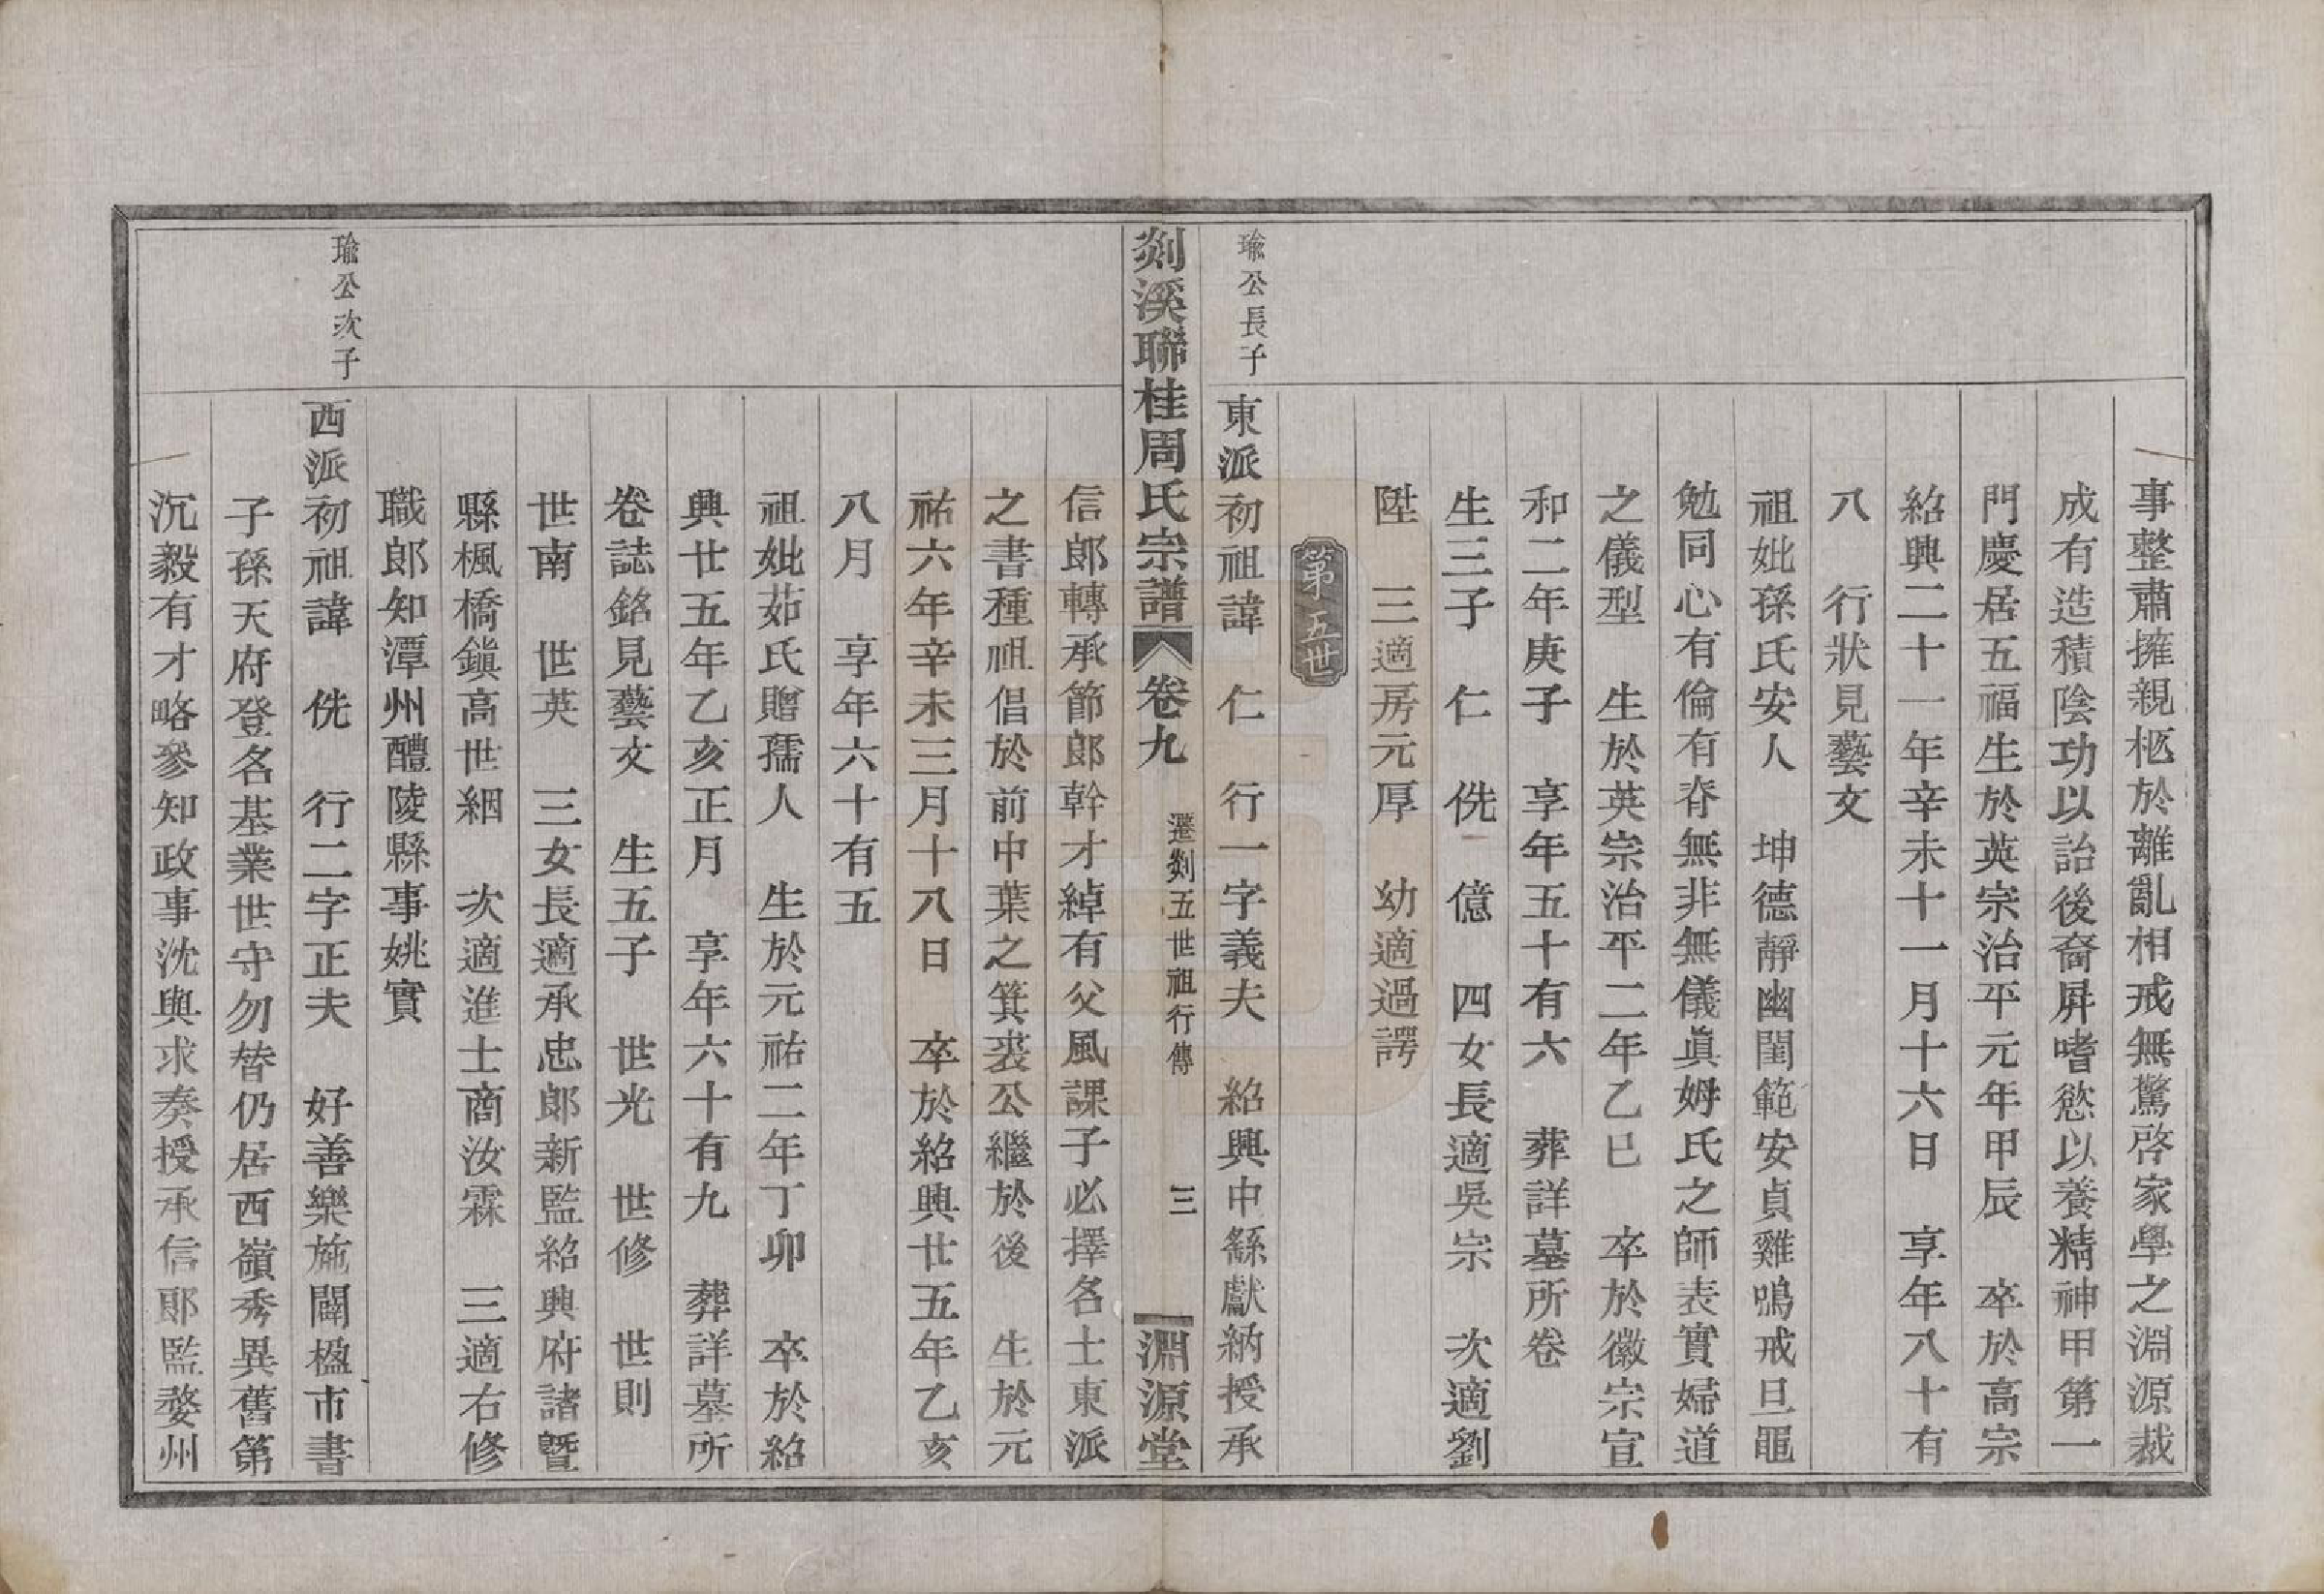 事整肅擁親柩於離亂相戒無驚啓家學之淵源裁
成有造積陰功以詒後裔屏嗜慾以養精神甲第一
門慶居五福生於英宗治平元年甲辰　卒於高宗
紹興二十一年辛未十一月十六日　享年八十有
八　行狀見藝文
祖妣孫氏安人　坤德靜幽閨範安貞雞鳴戒旦黽
勉同心有倫有脊無非無儀眞姆氏之師表實婦道
之儀型　生於英宗治平二年乙巳　卒於徽宗宣
和二年庚子　享年五十有六　葬詳墓所卷
生三子　仁　侁　億　四女長適吳宗　次適劉
陞　三適房元厚　幼適過諤
第五世
瑜公長子
東派初祖諱　仁　行一字義夫　紹興中繇獻納授承
剡溪聯桂周氏宗譜　卷九　遷剡五世祖行傳　三　淵源堂
信郎轉承節郎幹才綽有父風課子必擇名士東派
之書種祖倡於前中葉之箕裘公繼於後　生於元
祐六年辛未三月十八日　卒於紹興廿五年乙亥
八月　享年六十有五
祖妣茹氏贈孺人　生於元祐二年丁卯　卒於紹
興廿五年乙亥正月　享年六十有九　葬詳墓所
卷誌銘見藝文　生五子　世光　世修　世則
世南　世英　三女長適承忠郎新監紹興府諸暨
縣楓橋鎮高世絪　次適進士商汝霖　三適右修
職郎知潭州醴陵縣事姚實
瑜公次子
西派初祖諱　侁　行二字正夫　好善樂施闢楹市書
子孫天府登名基業世守勿替仍居西嶺秀異舊第
沉毅有才略參知政事沈與求奏授承信郞監婺州